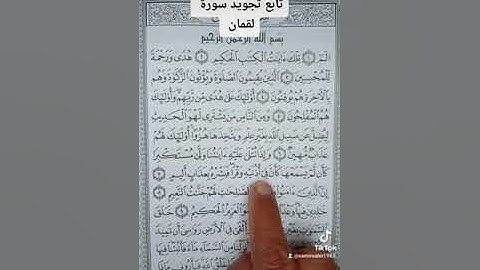 تابع تجويد سورة
لقمان
بسم الله الرحمن الرحيم
الم ١ تلك ءايت الكتب الحكيم ٢ هدى ورحمة
للمحسنين ٣ الذين يقيمون الصلوة ويؤتون الزكوة وهم
بالأخرة هم يوقنون ٤ أولئك على هدى من ربهم وأولئك
هم المفلحون ٥ ومن الناس من يشترى لهو الحديث
ليضل عن سبيل الله بغير علم ويتخذها هزوا أولئك لهم
عذاب مهين ٦ وإذا تتلى عليه ءايتنا ولى مستكبرا
كأن لم يسمعها كأن فى أذنيه وقرا فبشره بعذاب أليم ٧
إن الذين ءامنوا الصلحت لهم جنت النعيم ٨
خلدين فيها وعد العزيز الحكيم ٩ خلق
السموت بغير الأرض روسى أن تميد
السماء ماء فأنبتنا فيها
خلق الله فأرونى ماذا
TikTok